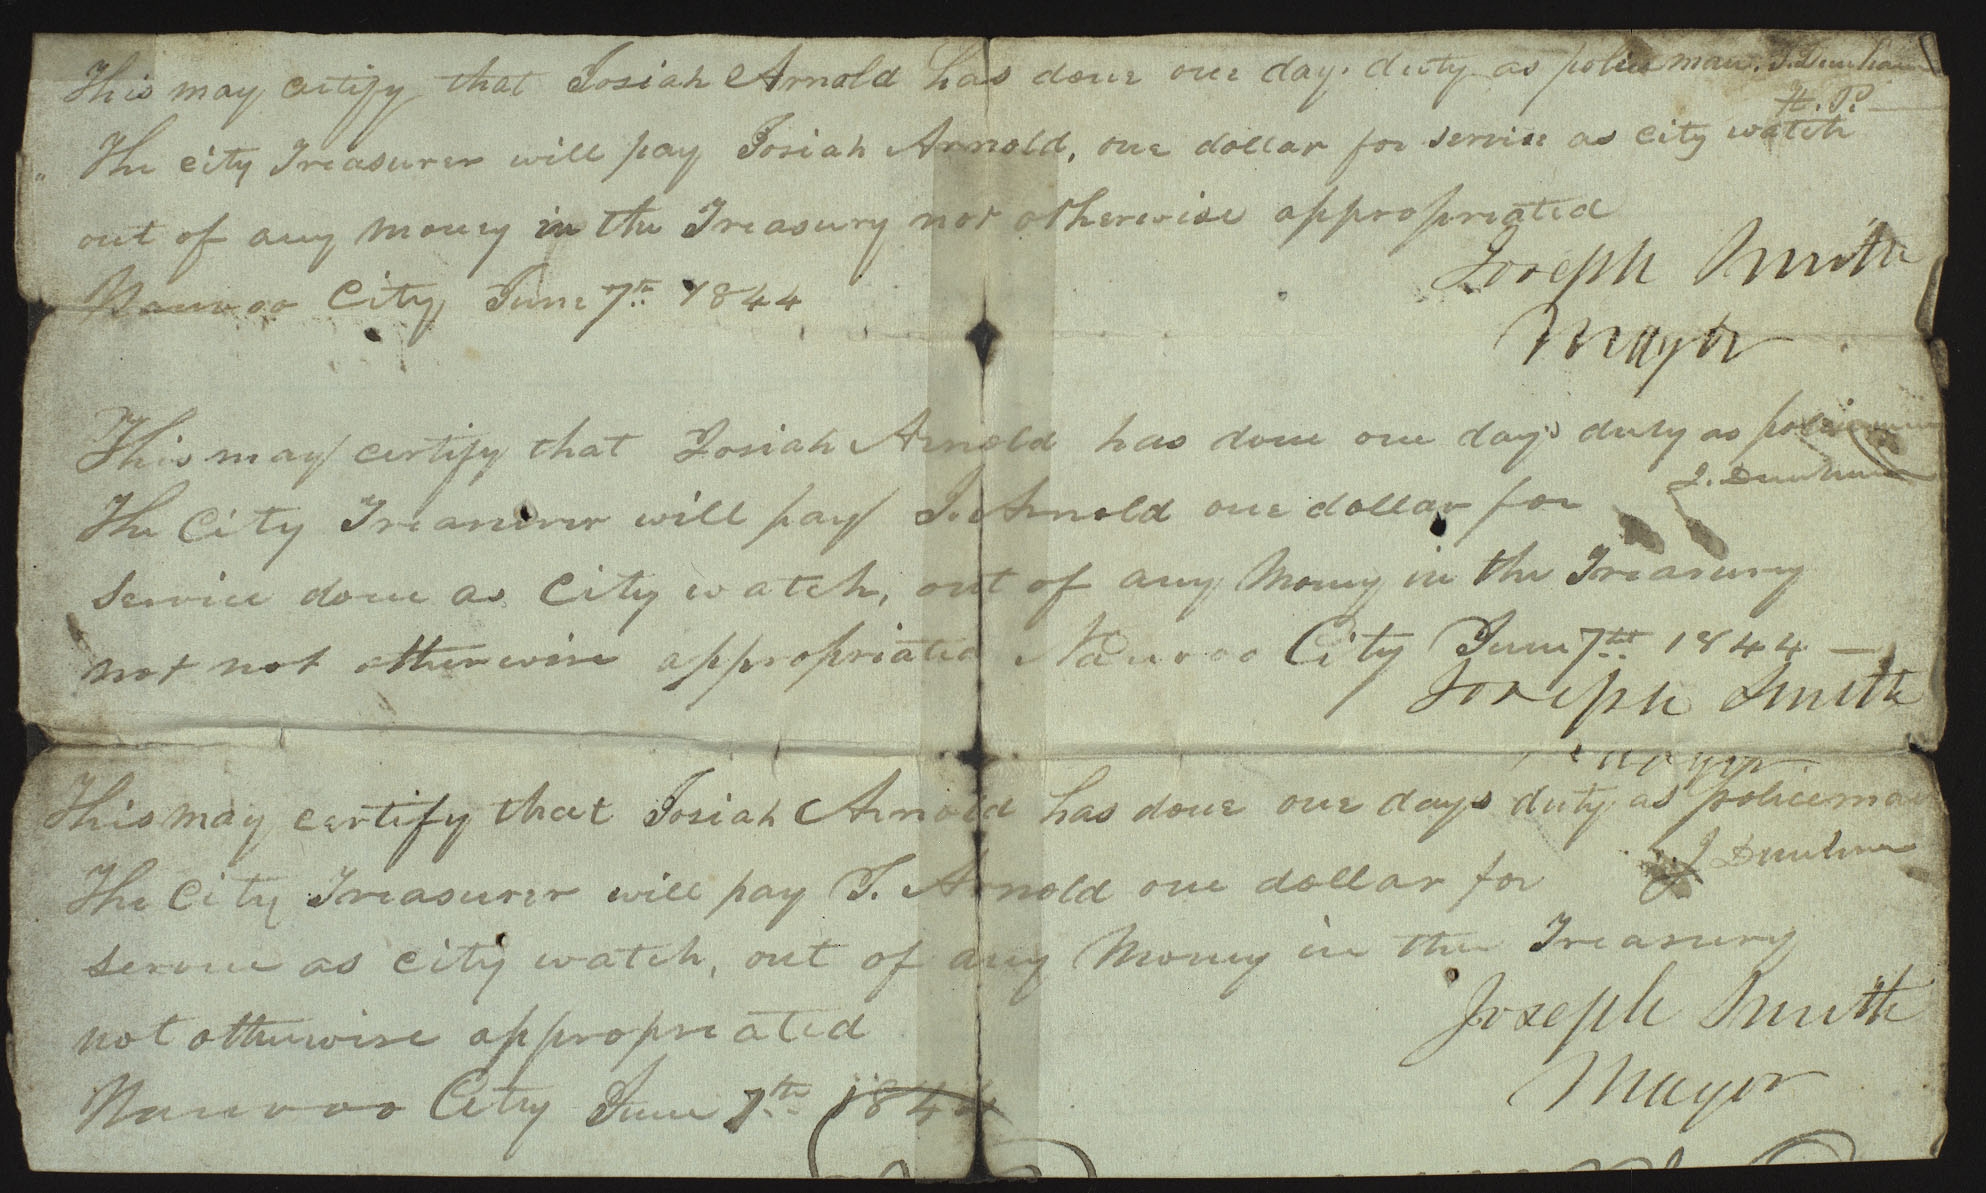 This may certify that Josiah Arnold has done one day. duty as police man. J. Dunham
H. P.
The city Treasurer will pay Josiah Arnold, one dollar for service as city watch
out of any money in the Treasury not otherwise appropreated
Joseph Smith
Nauvoo City, June 7th 1844
Mayor
This may certify that Josiah Arnold has done one days duty as policeman
J. Dunham
The City Treasurer will pay J. Arnold one dollar for
service done as City watch, out of any Money in the Treasury
not not otherwise appropriated Nauvoo City June 7th 1844 —
Joseph Smith
Mayor
This may certify that Josiah Arnold has done one days duty as policeman
J Dunham
The City Treasurer will pay J. Arnold one dollar for
service as city watch, out of any Money in the Treasury
not otherwise appropreated
Joseph Smith
Mayor
Nauvoo City June 7th 1844